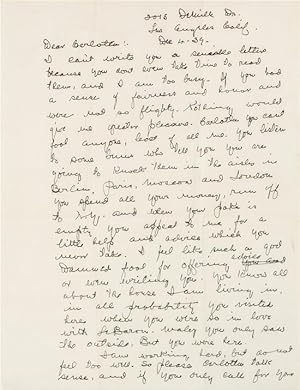 2015 DeMille Dr.
Los Angeles Calif.
Dec 4-39.
Dear Carlotta:.
I can't write you a sensible letter
because you don't even take time to read
them, and I am too busy. If you had
a sense of fairness and honor and
were not so flighty. Nothing would
give me greater pleasure. Carlotta you can't
fool anyone, least of all me. You listen
to some bums who tell you you are
going to knock them in the aisles in
Berlin, Paris, Moscow and London
you spend all your money, run off
to and when your is
empty you appeal to me for a
little help and advice which you
never take. I feel like such a god
Damned fool for offering advice
or even writing you. You know all
about the house I am living in,
in all probability you visited
here when you were so in love
with you only saw
the outside. But you were here.
I am working hard, but do not
feel too well. So please Carlotta talk
sense, and if you only call for you